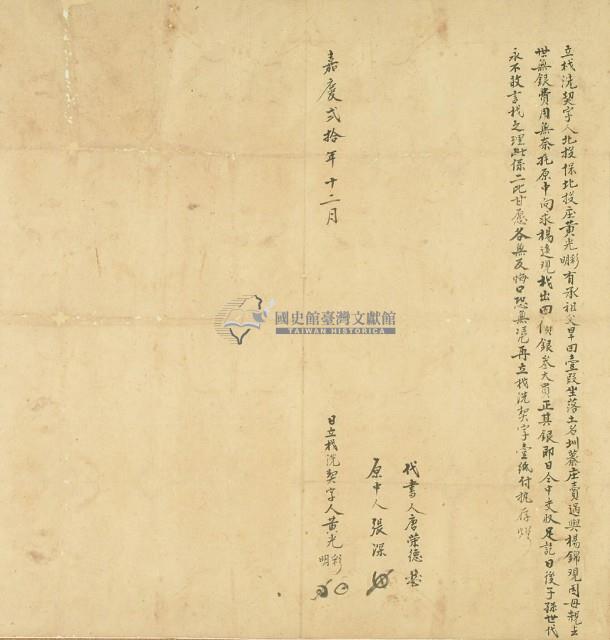 立找洗契字人北投保北投庄黃光明彩有承祖父旱田壹段坐落土名圳寮庄賣過與楊錦觀因母親去
世無銀費用無奈托原中向求楊逵觀找出田價銀叁大員正其銀即日仝中交收足訖日後子孫世代
永不敢言找之理此係二比甘愿各無反悔口恐無憑再立找洗契字壹紙付執存炤
嘉慶貳拾年十二月
代書人唐榮德
原中人張深
日立找洗契字人黃光明彩
國史館臺灣文獻館
TAIWAN HISTORICA